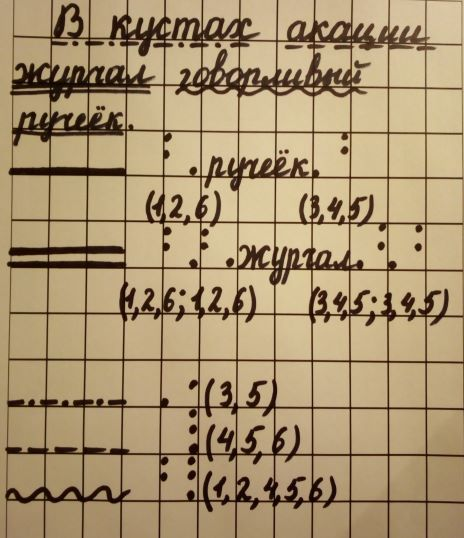 В кустах акации
журчал говорливый
ручеёк.
ручеёк.
(1,2,6) (3,4,5)
журчал.
(1,2,6; 1,2,6) (3,4,5; 3,4,5)
(3,5)
(4,5,6)
(1,2,4,5,6)